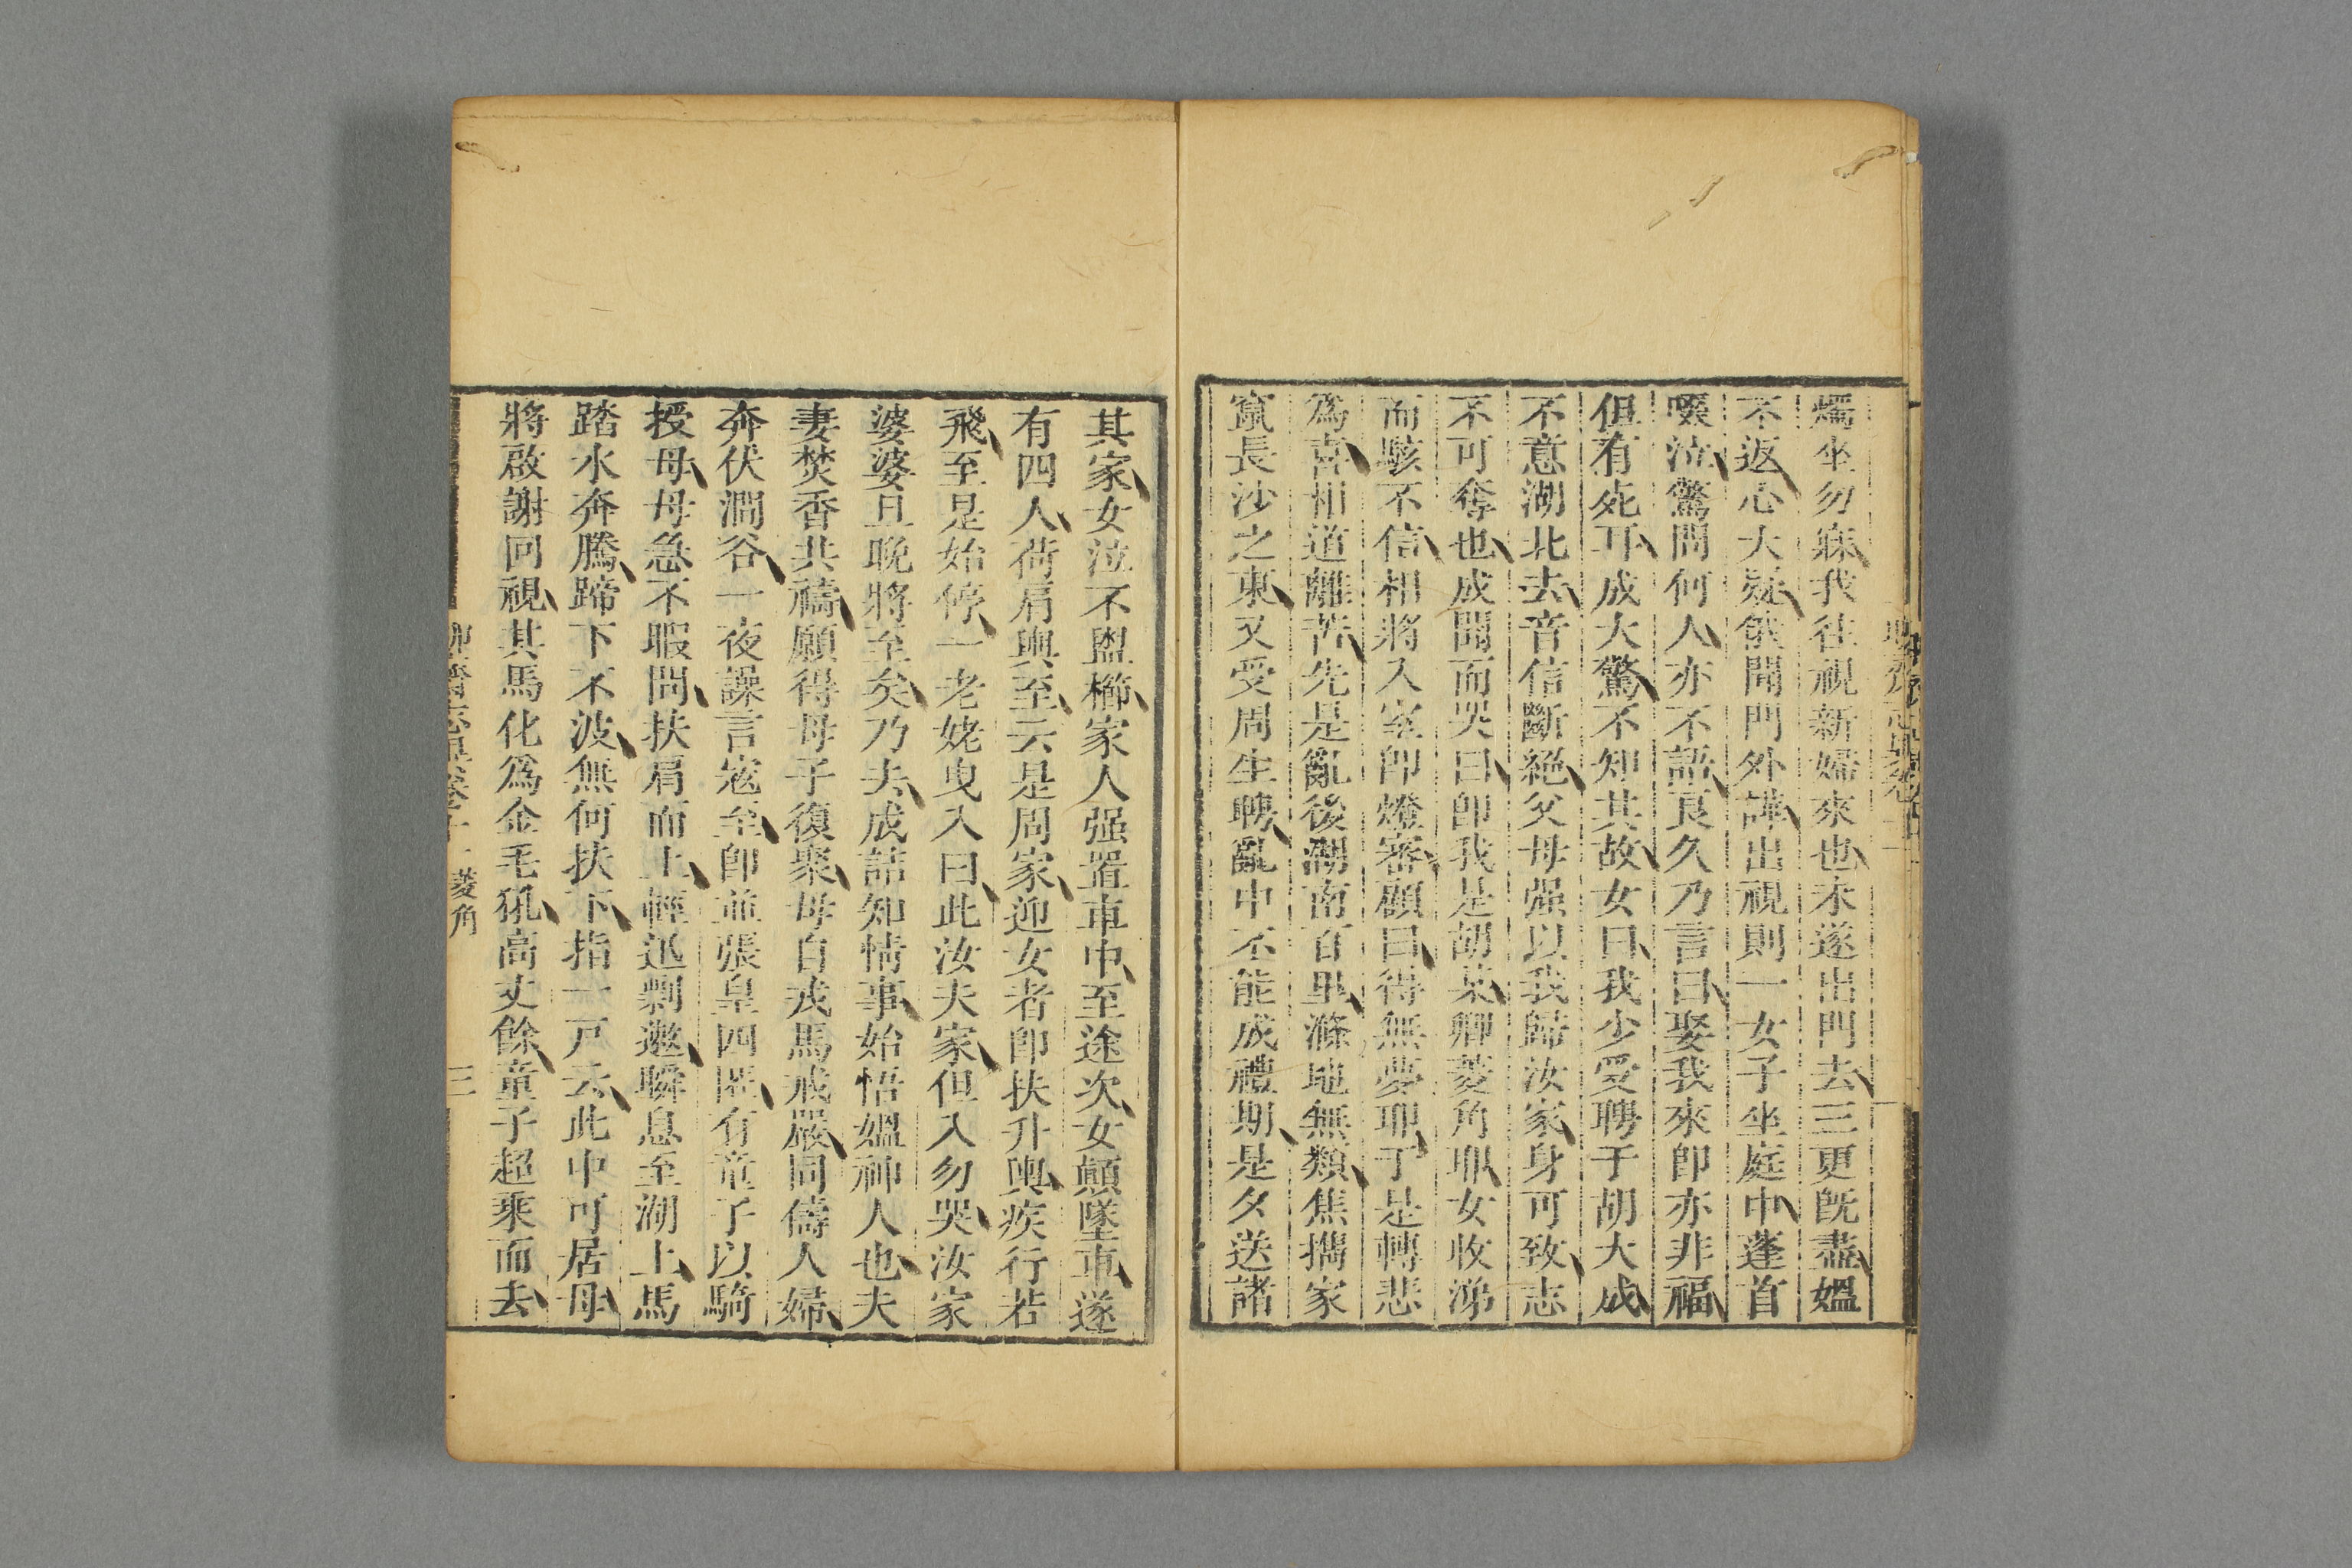 燭坐勿寐我往視新婦來也未遂出門去三更既盡媼
不返心大疑俄聞門外譁出視則一女子坐庭中蓬首
啜泣驚問何人亦不語良久乃言曰娶我來即亦非福
但有死耳成大驚不知其故女曰我少受聘于胡大成
不意湖北去音信斷絕父母强以我歸汝家身可致志
不可奪也成聞而哭曰即我是胡某卿菱角耶女收涕
而駭不信相將入室即燈審顧曰得無夢耶于是轉悲
為喜相道離苦先是亂後湖南百里滌地無類焦攜家
竄長沙之東又受周生聘亂中不能成禮期是夕送諸
其家女泣不盥櫛家人强置車中至途次女顛墜車遂
有四人荷肩輿至云是周家迎女者即扶升輿疾行若
飛至是始停一老姥曳入曰此汝夫家但入勿哭汝家
婆婆旦晚將至矣乃去成詰知情事始悟媼神人也夫
妻焚香共禱願得母子復聚母自戎馬戒嚴同儔人婦
奔伏澗谷一夜譟言寇至即並張皇四匿有童子以騎
授母母急不暇問扶肩而上輕迅剽遬瞬息至湖上馬
踏水奔騰蹄下不波無何扶下指一戸云此中可居母
將啟謝回視其馬化爲金毛犼高丈餘童子超乘而去
菱角
三